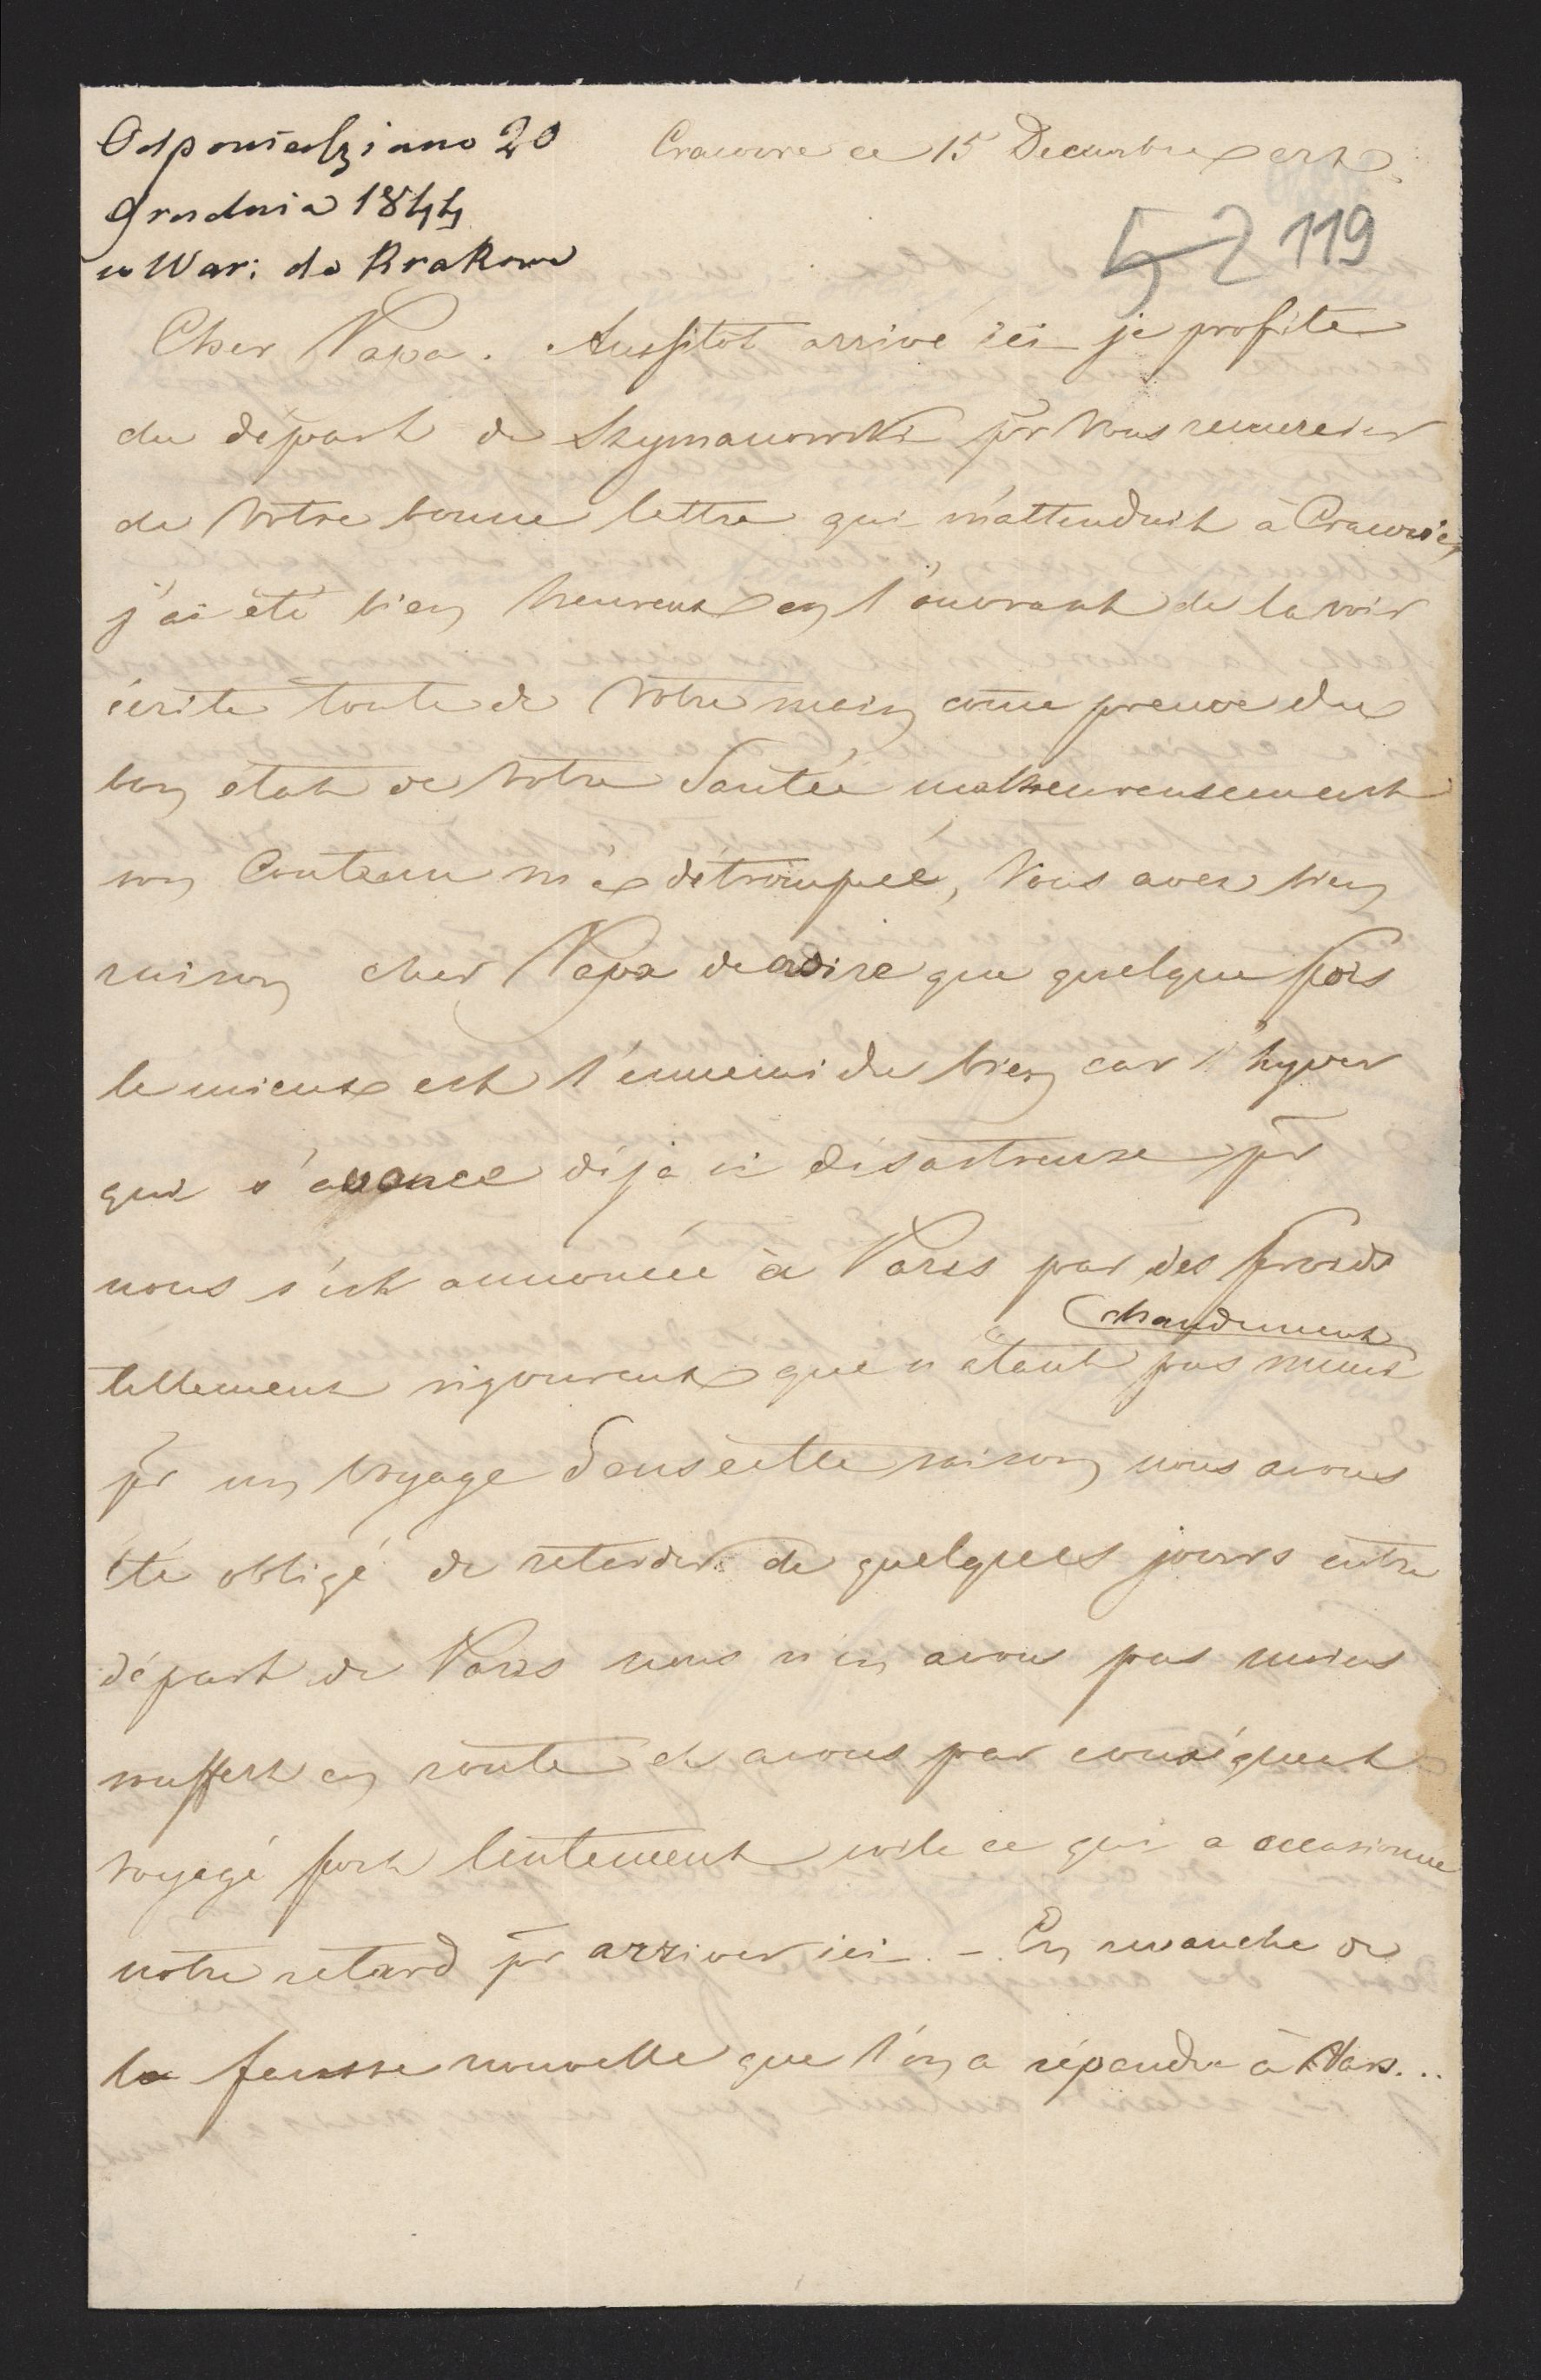 Odpowiedziano 20
Grudnia 1844
w War: do Krakowa
Cracovie ce 15 Decembre
52 119
Cher Papa. Aussitôt arrivé ici je profite
du départ de Szymanowski pr Vous remercier
de Votre bonne lettre qui m'attendait à Cracovie,
j'ai été bien heureux en l'ouvrant de la voir
écrite toute de Votre main come preuve du
bon état de Votre Santée malheureusement
son Contenu m'a détrompée, Vous avez bien
raison cher Papa de dire que quelque fois
le mieux est l'ennemi du bien car l'hyver
qui s'avance déja si désastreuse pr
nous s'est annoncée à Paris par des froids
chaudement
tellement rigoureux que n'étant pas munis
pr un voyage dans cette saison nous avons
été obligé de retarder de quelques jours notre
départ de Paris nous n'en avons pas moins
souffert en route et avons par conséquent
voyagé fort lentement voila ce qui a occasionné
notre retard pr arriver ici. - En revanche de
la fausse nouvelle que l'on a répandu à Vars...